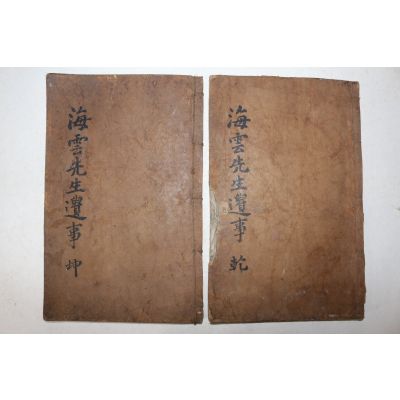 海雲先生遺事 乾
海雲先生遺事 坤